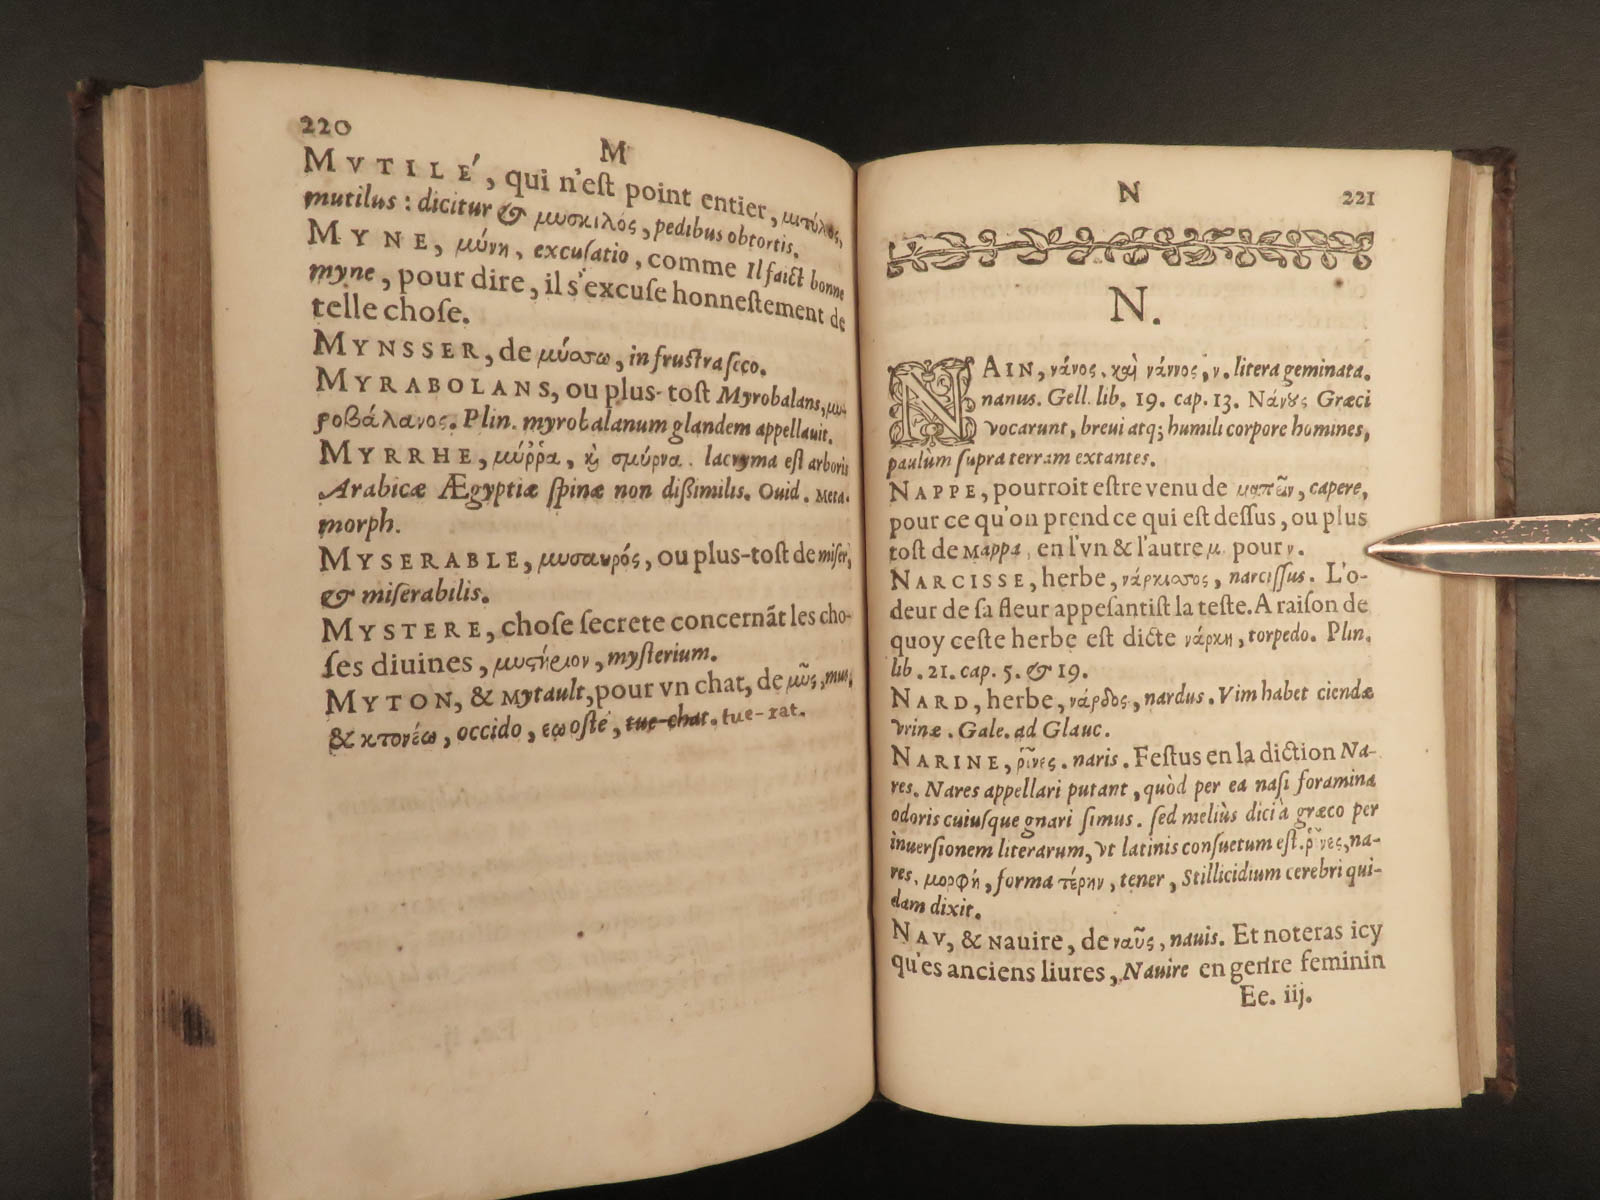 220
M
MVTILÉ, qui n'eſt point entier, μιτύλος,
mutilus : dicitur & μυσκιλός, pedibus obtortis.
MYNE, μύνη, excuſatio, comme Il faict bonne
myne, pour dire, il s'excuſe honneſtement de
telle choſe.
MYNSSER, de μύσσω, in fruſtra ſeco.
MYRABOLANS, ou plus-toſt Myrobalans, μυ-
ροβάλανος. Plin. myrobalanum glandem appellauit.
MYRRHE, μύῤῥα, ϗ σμύρνα. lacryma eſt arboris
Arabicæ Ægyptiæ ſpinæ non dißimilis. Ouid. Meta-
morph.
MYSERABLE, μυσαρός, ou plus-toſt de miſer,
& miſerabilis.
MYSTERE, choſe ſecrete concernãt les cho-
ſes diuines, μυϛήειον, myſterium.
MYTON, & Mytault, pour vn chat, de μῦς, mus,
& κτονέω, occido, tue-chat. tue-rat.
N
221
N.
NAIN, νάνος. καὶ νάννος, ν. litera geminata.
nanus. Gell. lib. 19. cap. 13. Νάνȣς Græci
vocarunt, breui atq; humili corpore homines,
paulùm ſupra terram extantes.
NAPPE, pourroit eſtre venu de μαπεῖν, capere,
pour ce qu'on prend ce qui eſt deſſus, ou plus
toſt de Mappa, en l'vn & l'autre μ. pour ν.
NARCISSE, herbe, νάρκισσος, narciſſus. L'o-
deur de ſa fleur appeſantiſt la teſte. A raiſon de
quoy ceſte herbe eſt dicte νάρκη, torpedo. Plin.
lib. 21. cap. 5. & 19.
NARD, herbe, νάρδος, nardus. Vim habet ciendæ
vrinæ. Gale. ad Glauc.
NARINE, ῥῖνες. naris. Feſtus en la diction Na-
res. Nares appellari putant, quòd per ea naſi foramina
odoris cuiuſque gnari ſimus. ſed meliùs dici à græco per
inuerſionem literarum, vt latinis conſuetum eſt. ῥῖνες, na-
res. μορφή, forma τέρην, tener, Stillicidium cerebri qui-
dam dixit.
NAV, & Nauire, de ναῦς, nauis. Et noteras icy
qu'es anciens liures, Nauire en genre feminin
Ee. iij.